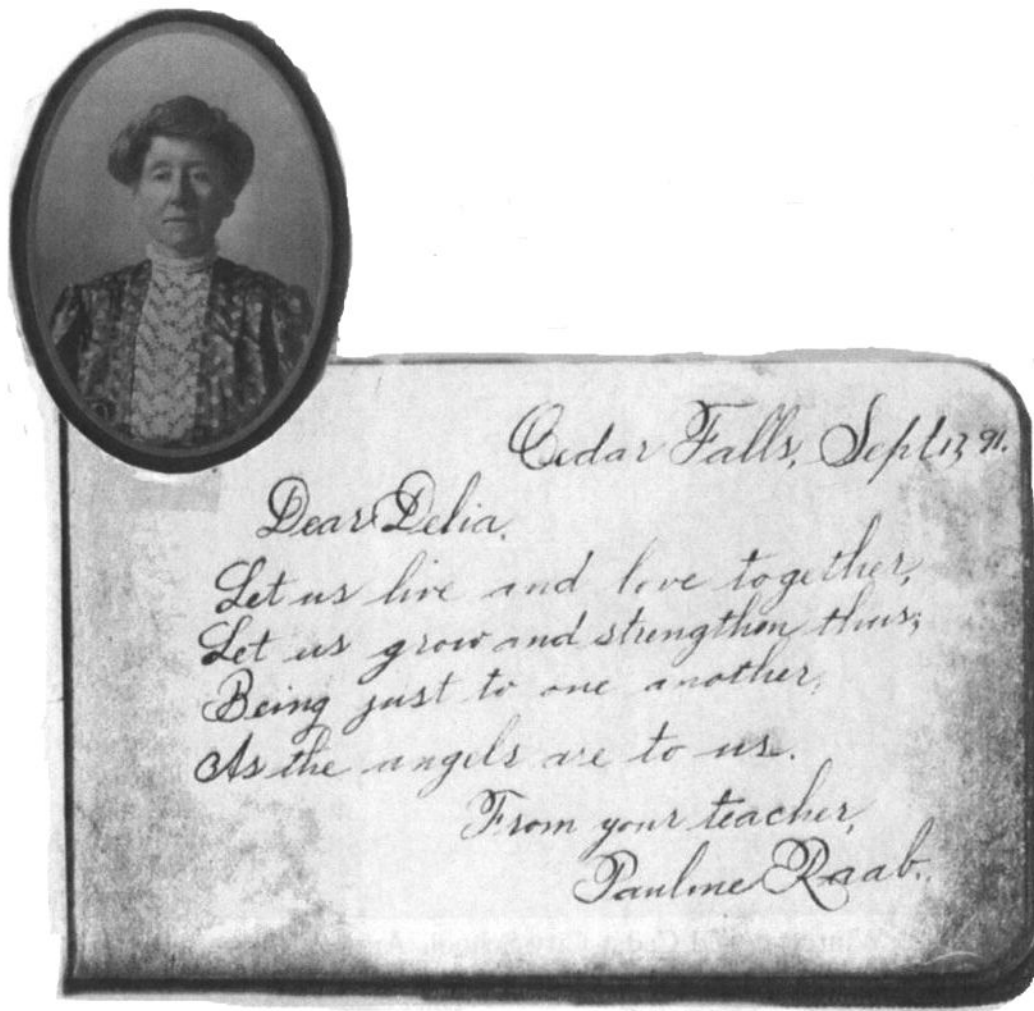 Cedar Falls, Sept 13, 91.
Dear Delia.
Let us live and love together,
Let us grow and strengthen thus;
Being just to one another,
As the angels are to us.
From your teacher,
Pauline Raab.